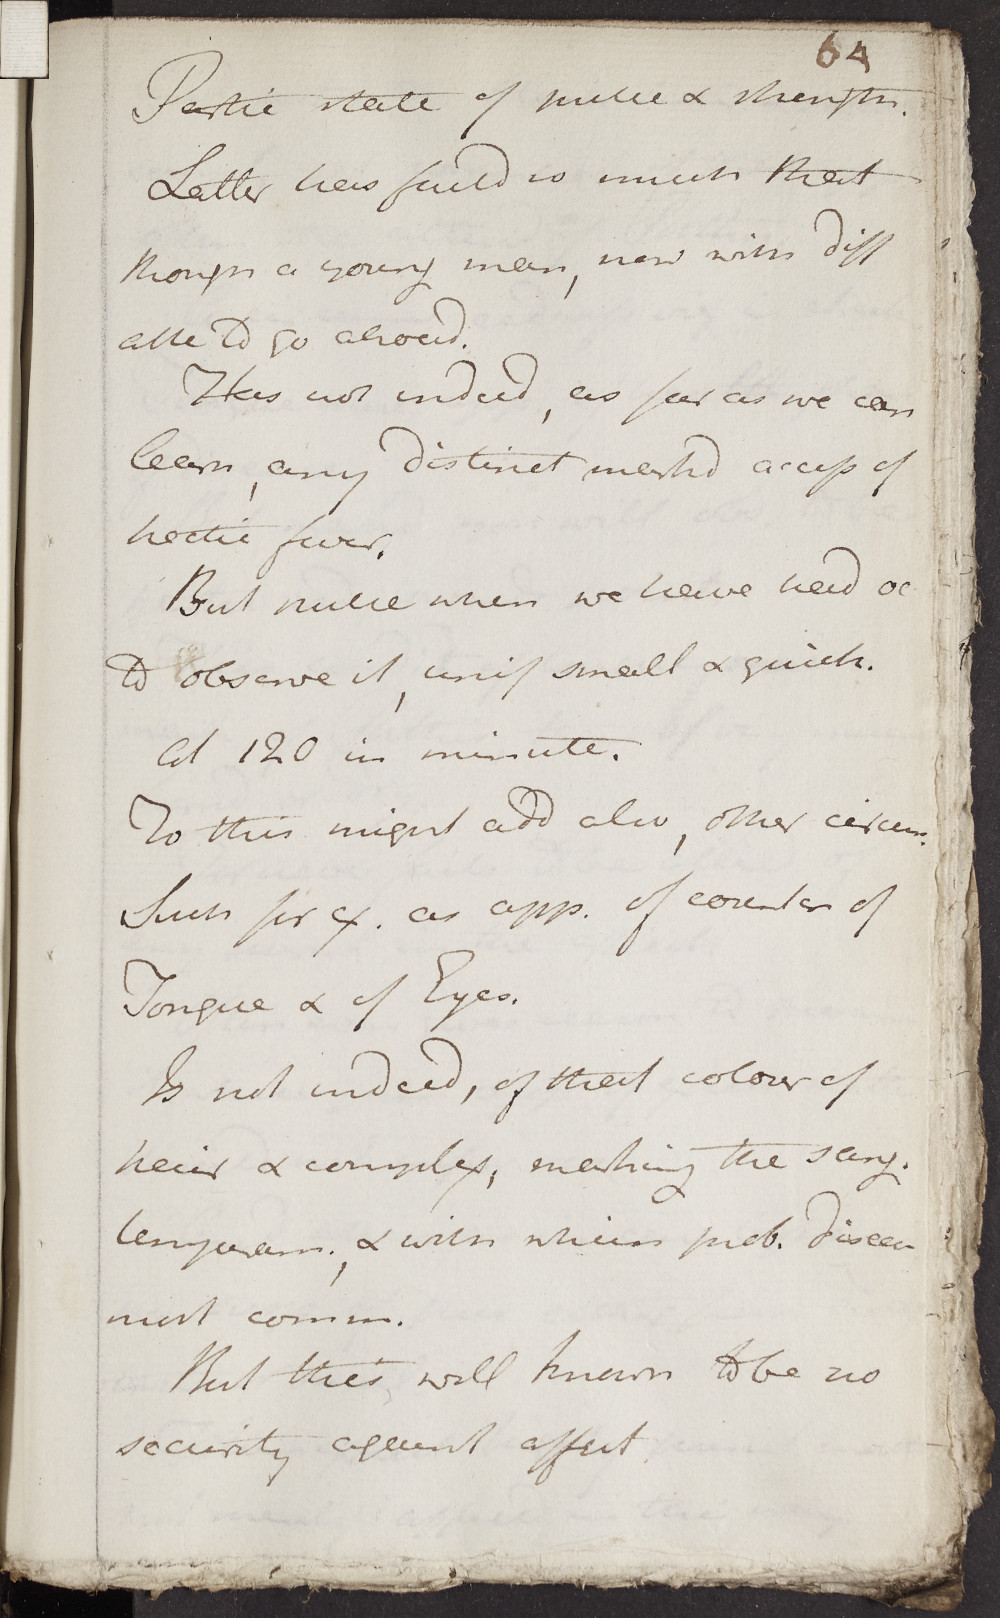 64
Partic state of pulse & strength.
Latter has fail'd so much that
though a young man, now with diff
able to go abroad.
Has not indeed, as far as we can
learn, any distinct mark'd access of
hectic fever.
But pulse when we have had oc
to observe it, unif small & quick.
at 120 in minute.
To this might add also, other circum.
Such for ex. as app. of counten of
Tongue & of Eyes.
Is not indeed, of that colour of
hair & complex, marking the sang.
temperam., & with which phth. disea
most comm.
But this, well known to be no
security against affect